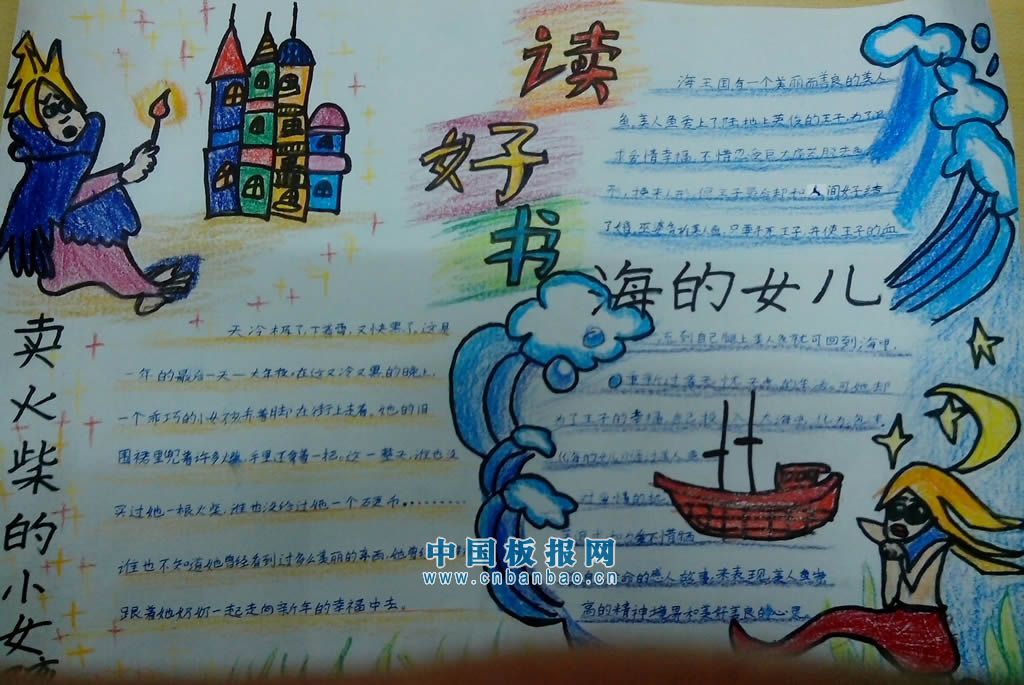 读
好
书
卖火柴的小女孩
天冷极了,下着雪,又快黑了,这是
一年的最后一天——大年夜,在这又冷又黑的晚上,
一个乖巧的小女孩赤着脚在街上走着。她的旧
围裙里兜着许多火柴,手里还拿着一把。这一整天,谁也没
买过她一根火柴,谁也没给过她一个硬币。………
谁也不知道她曾经看到过多么美丽的东西,她曾
跟着她奶奶一起走向新年的幸福中去。
海王国有一个美丽而善良的美人
鱼,美人鱼爱上了陆地上英俊的王子,为了追
求爱情幸福,不惜忍受巨大痛苦,脱去鱼
形,换来人形,但王子最后却和人间女子结
了婚,巫婆告诉美人鱼,只要杀死王子,并使王子的血
海的女儿
流到自己腿上,美人鱼就可回到海里,
重新过着无忧无虑的生活。可她却
为了王子的幸福,自己投入大海中,化为泡沫
海的女儿
对爱情
不惜牺
命的感人故事,来表现美人鱼崇
高的精神境界和美好善良的心灵。
中国板报网
www.cnbanbao.cn